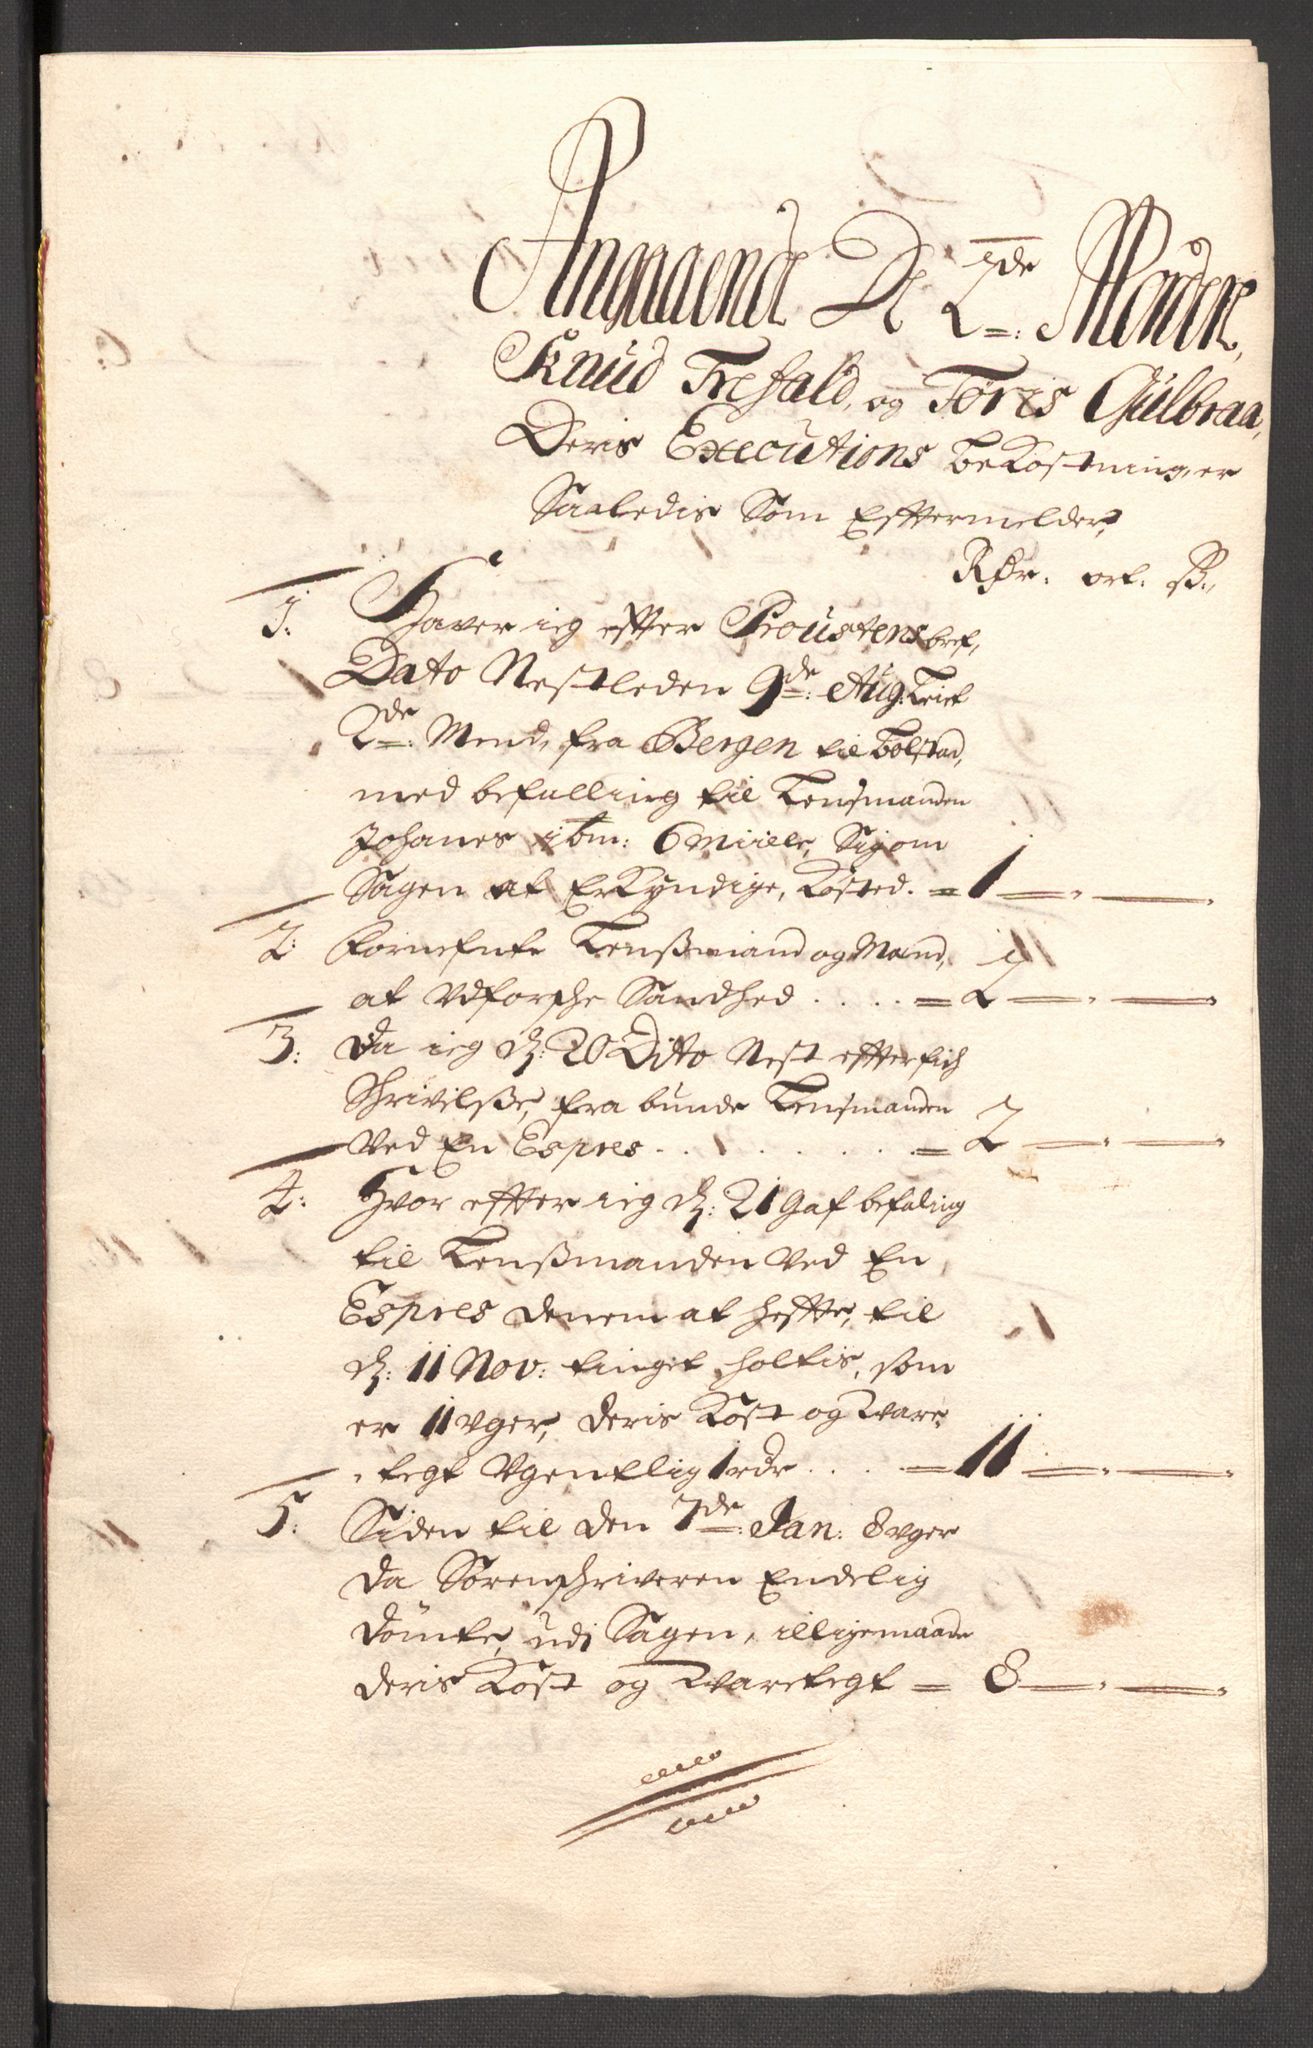 Angaaende De 2de: Mordere,
Knud Trefald, og Tøris Gulbraa,
Deris Executions bekostning, er
Saaledis Som Efftermelder,
Rdr. ort. s.,
1: Haver ieg effter Proustens bref,
Dato Nestleden 9de: Aug: leiet
2de: Mend, fra Bergen til Bolstad,
med befalling til Lensmanden
Johanes ibm: 6 miile, Sig om
Sagen at Erkyndige, kosted. = 1
2: Fornefnte Lensmand og Mand,
at Udforsche Sandhed . . . . = 2
3: Da ieg d: 20 Dito Nest effter fich
Schrivelsse, fra bunde Lensmanden
Ved En Espres . . . . . . = 2
4: Hvor effter ieg d: 21 gaf befaling
til Lensmanden Ved En
Espres denem at heffte, til
d: 11 Nov: tinget holtis, som
er 11 uger, deris Kost og Vare-
tegt Ugentlig 1 rdr . . . . = 11
5: Siden til den 7de: Jan: 8 uger
da Sorenschriveren Endelig
dömte, udi Sagen, illigemaade
deris Kost og Varetegt = 8